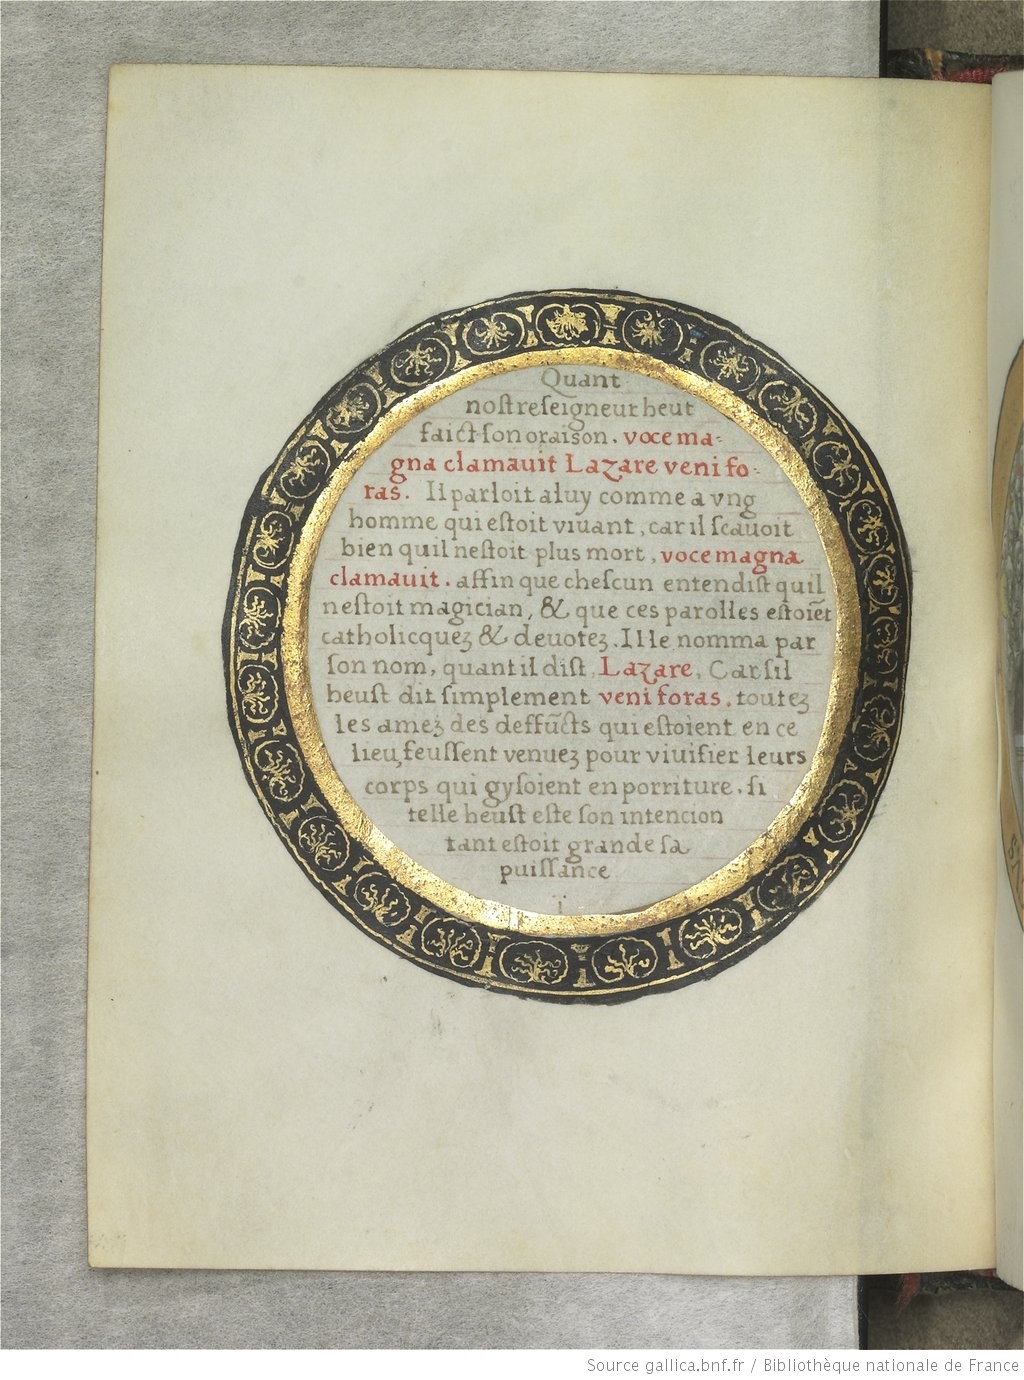 Quant
nostre seigneur heut
faict son oraison. voce ma-
gna clamavit Lazare veni fo-
ras. Il parloit a luy comme a vng
homme qui estoit viuant, car il scauoit
bien quil nestoit plus mort, voce magna
clamauit. affin que chescun entendist quil
nestoit magician, & que ces parolles estoiēt
catholicquez & deuotez. Il le nomma par
son nom, quant il dist, Lazare, Car sil
heust dit simplement veni foras, toutez
les amez des deffūcts qui estoient en ce
lieu, feussent venuez pour viuifier leurs
corps qui gysoient en porriture, si
telle heust este son intencion
tant estoit grande sa
puissance
Source gallica.bnf.fr / Bibliothèque nationale de France